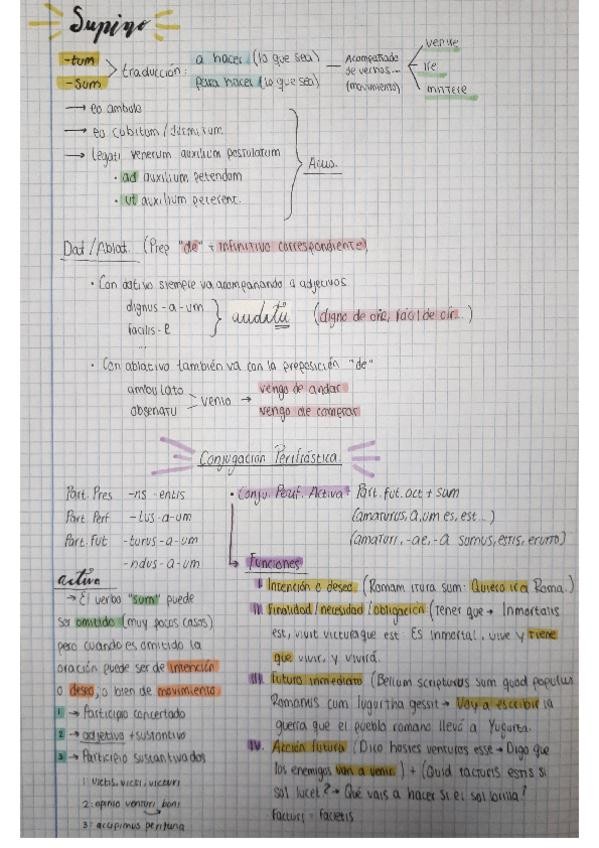 Supino
-tum
-sum
traducción:
a hacer (lo que sea)
para hacer (lo que sea)
Acompañado
de verbos...
(movimiento)
venire
ire
mittere
→ eo ambulo
→ eo cubitum / dormitum
→ legati venerum auxilium postulatum
• ad auxilium petendom
• ut auxilium peterent.
Acus.
Dat/Ablat. (Prep "de" + infinitivo correspondiente)
• Con dativo siempre va acompañando a adjetivos
dignus-a-um
facilis-e
...
auditū
(digno de oír, fácil de oír...)
• Con ablativo también va con la preposición "de"
ambulato
obsenatu
venio →
vengo de andar
vengo de comprar
Conjugación Perifrástica
Part. Pres -ns -entis
Part. Perf -tus-a-um
Part. Fut -turus-a-um
-ndus-a-um
• Conju. Perif. Activa: Part. fut. act + sum
(amaturus, a, um es, est...)
(amaturi, -ae, -a sumus, estis, erunto)
activa
→ El verbo "sum" puede
ser omitido (muy pocos casos)
pero cuando es omitido la
oración puede ser de intención
o deseo, o bien de movimiento.
1 → Participio concertado
2 → adjetivo + sustantivo
3 → Participio sustantivados
1: victis, victi, victuri
2: opinio venturi boni
3: accipimus peritura
Funciones
I. Intención o deseo (Romam itura sum: Quiero ir a Roma.)
II. Finalidad/necesidad/obligación (Tener que → Inmortalis
est, vivit victuraque est: Es inmortal, vive y tiene
que vivir, y vivirá.
III. Futuro inmediato (Bellum scripturus sum quod populus
Romanus cum Iugurtha gessit → Voy a escribir la
guerra que el pueblo romano llevó a Yugurta.
IV. Acción futura (Dico hostes venturos esse → Digo que
los enemigos van a venir.) + (Quid facturis estis si
sol lucet? → Qué vais a hacer si el sol brilla?
facturi = facietis